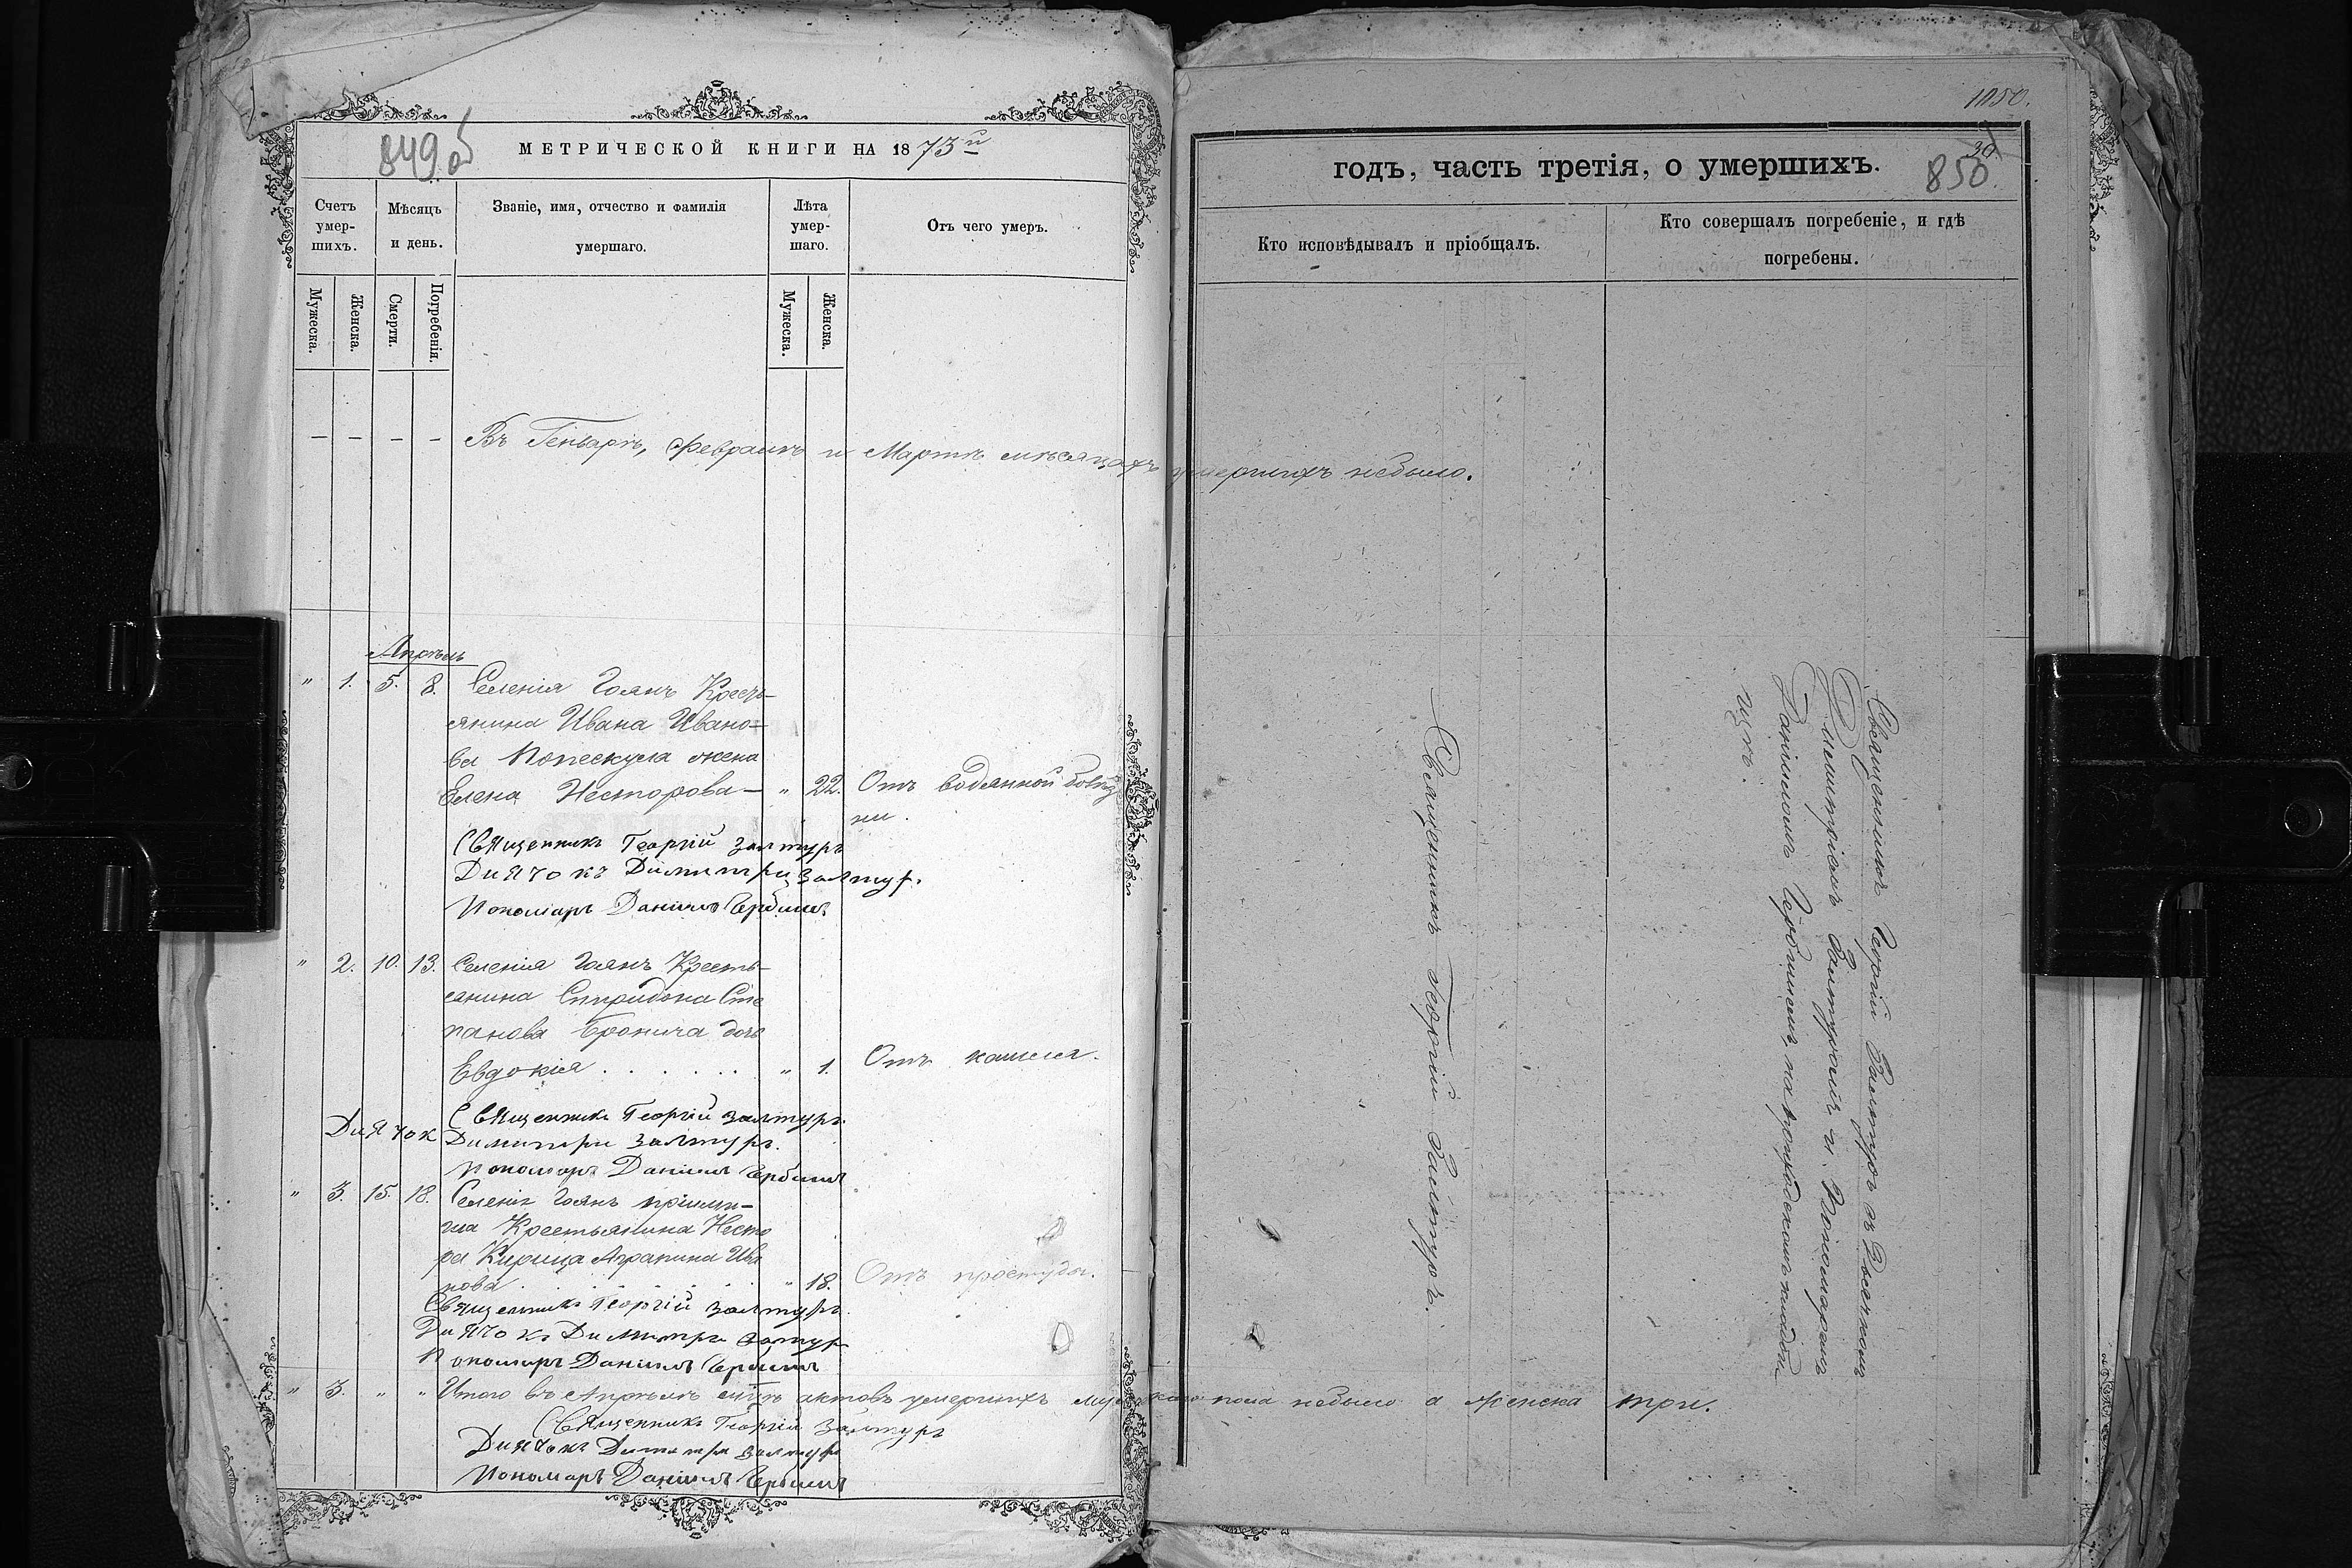 849об
МЕТРИЧЕСКОЙ КНИГИ НА 1873й
Счетъ умер-шихъ.
Мѣсяцъ и день.
Званіе, имя, отчество и фамилія умершаго.
Лѣта умер-шаго.
Отъ чего умеръ.
Мужеска.
Женска.
Смерти.
Погребенія.
Мужеска.
Женска.
— — — — Въ Генварѣ, Февралѣ и Мартѣ мѣсяцахъ умершихъ небыло.
Апрѣль
" 1. 5. 8. Селенія Гоянъ Кресть-
янина Ивана Ивано-
ва Попескула жена
Елена Несторова — " 22. Отъ водянной
Священникъ Георгій Залтуръ
Диячокъ Димитри Залтур.
Пономарь Даніилъ Чербишъ
" 2. 10. 13. Селенія Гоянъ Кресть-
янина Спиридона Сте
панова дочь
Евдокія . . . . . . " 1. Отъ кашеля.
Священникъ Георгій Залтуръ
Диячок Димитри Залтуръ
Пономарь Даніилъ Чербишъ
" 3. 15. 18. Селенія Гоянъ
Крестьянина Несто
ра Ива
нова . . . . . . " 18. Отъ простуды.
Священникъ Георгій Залтуръ
Диячокъ Димитри Залтур
Пономарь Даніилъ Чербишъ
" 3. " " Итого въ Апрѣлѣ м-цѣ актовъ умершихъ мужскаго пола небыло а женска три.
Священникъ Георгій Залтуръ
Диячокъ Димитри Залтур
Пономарь Даніилъ Чербишъ
1050.
30.
850.
годъ, часть третія, о умершихъ.
Кто исповѣдывалъ и пріобщалъ.
Кто совершалъ погребеніе, и гдѣ
погребены.
Священникъ Георгій Залтуръ.
Священникъ Георгій Залтуръ съ Дьячкомъ
Димитріемъ Залтуромъ и Пономаремъ
Даніиломъ Чербишемъ на приходскомъ кладби
щѣ.